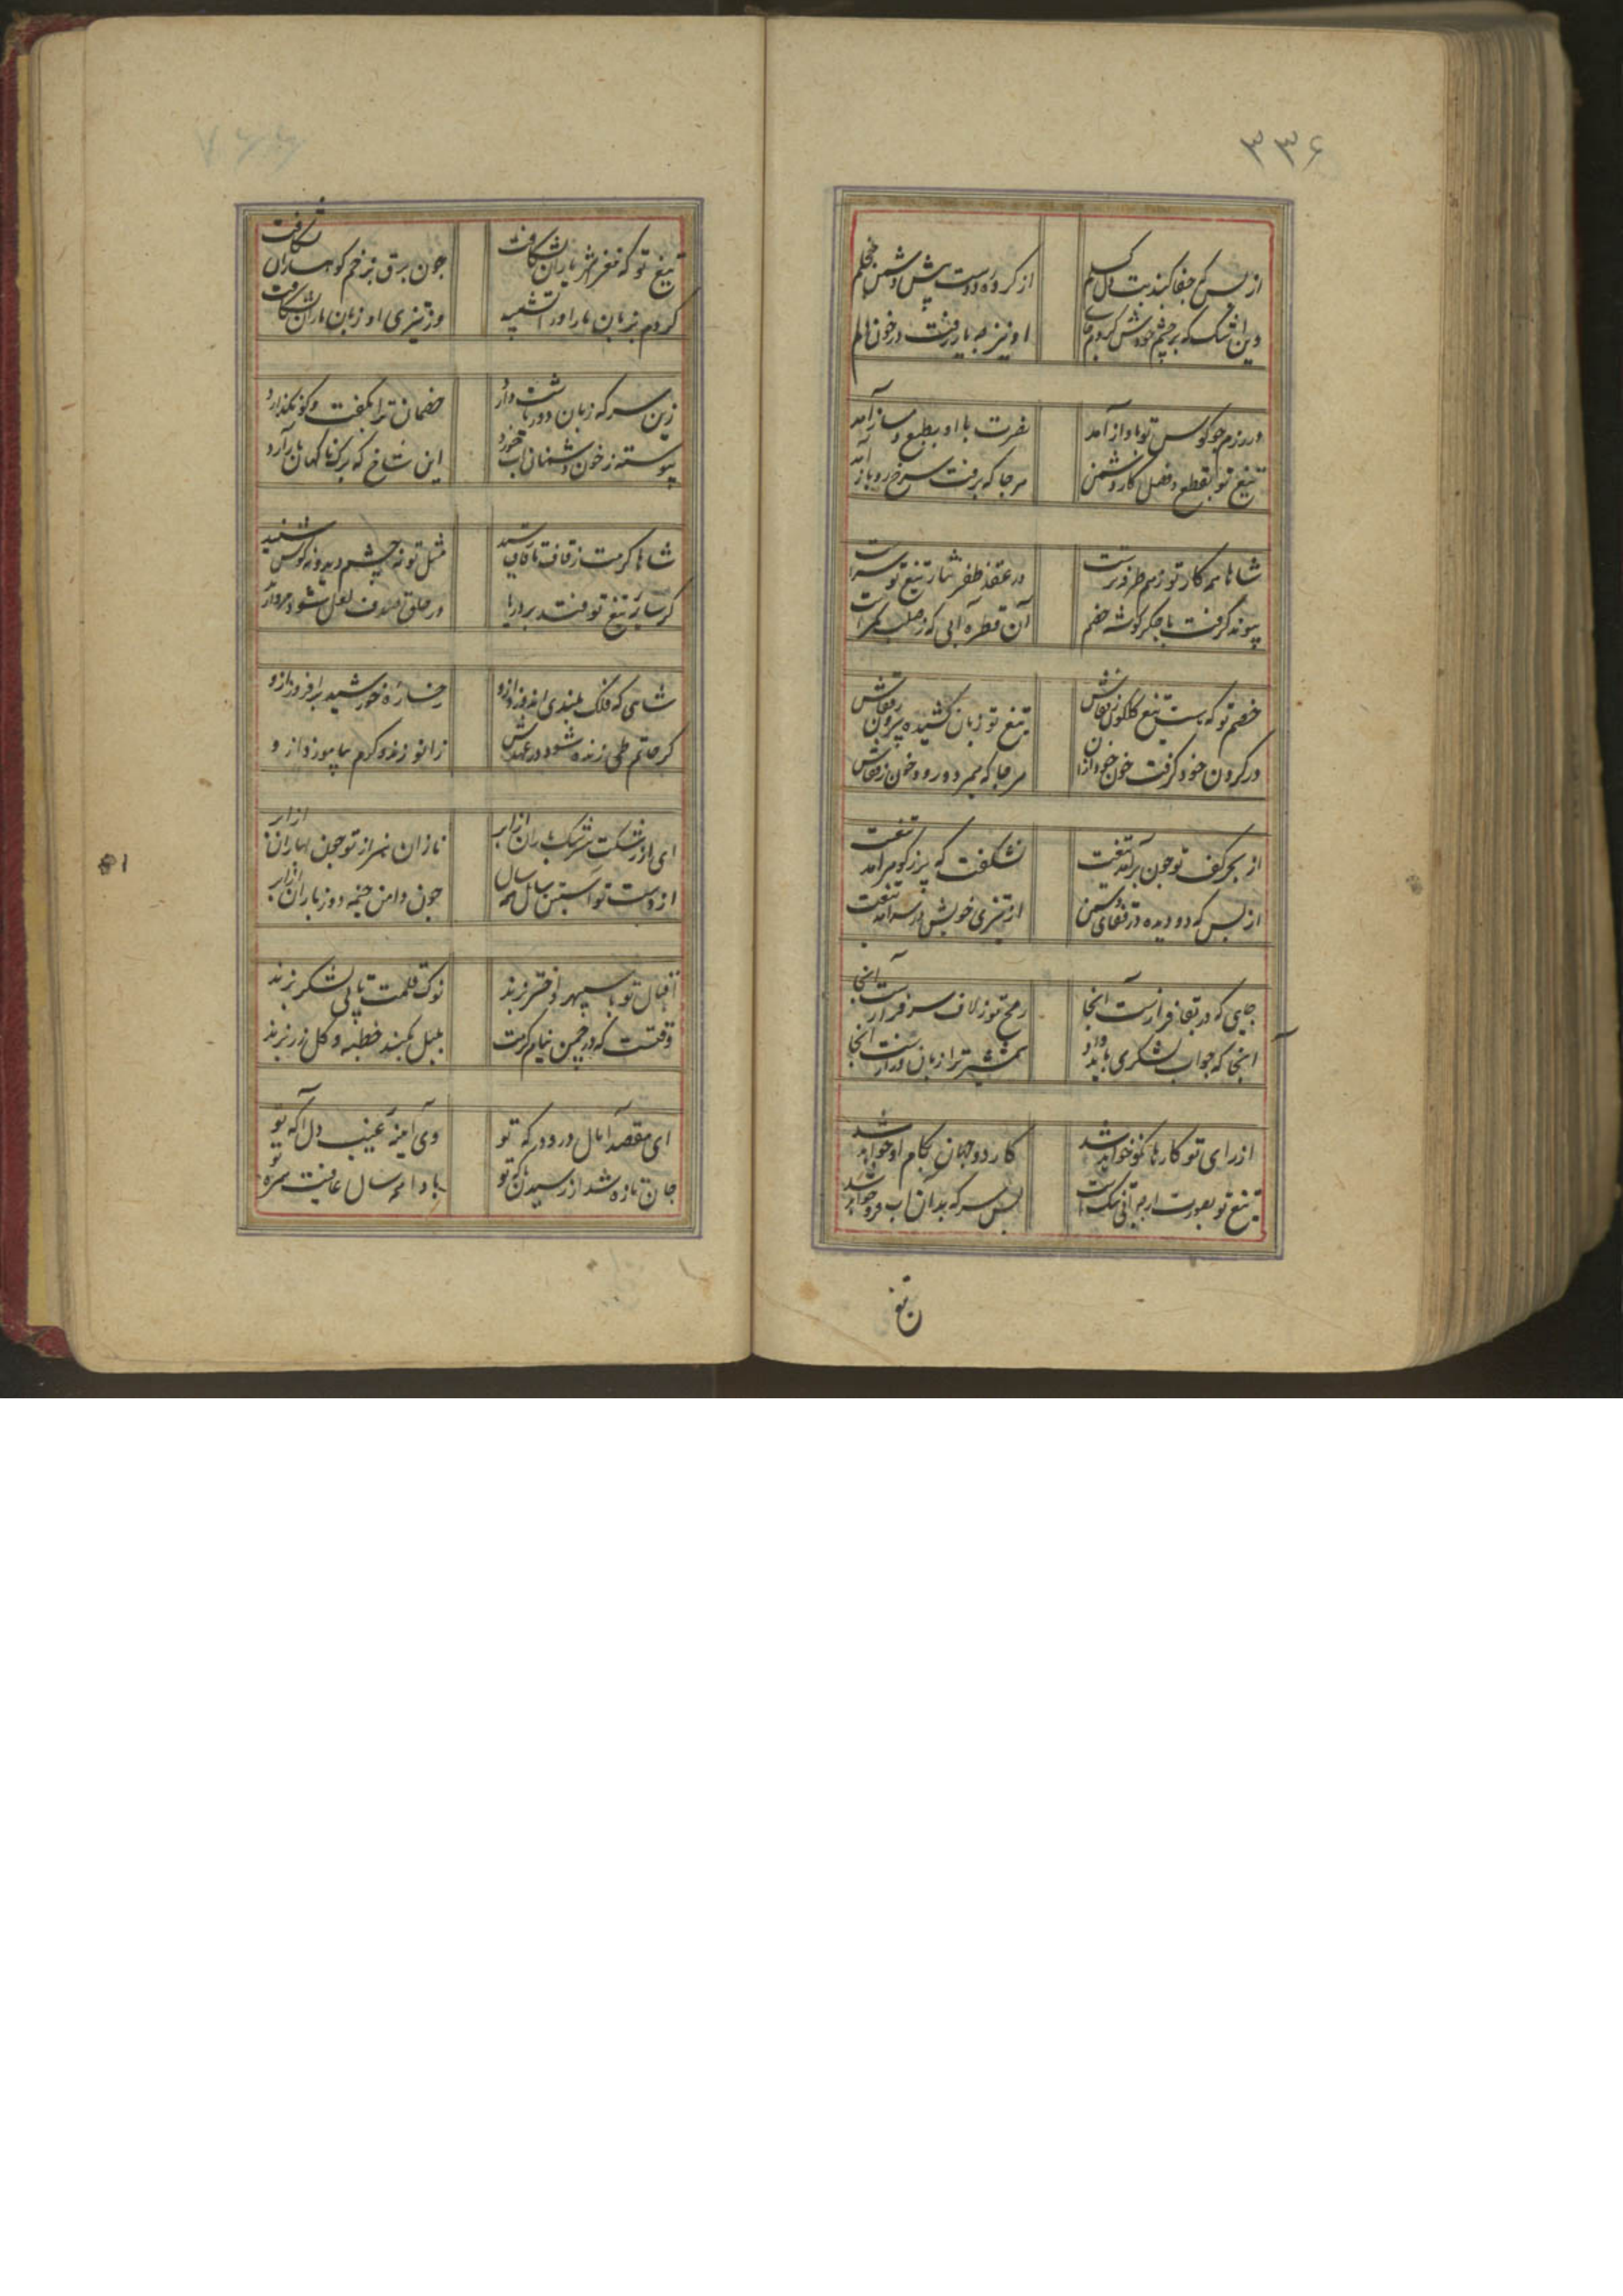 ۳۳۶
از بس که جفا کند بت دل کسلم
از کرده دوست پیش دشمن خجلم
وین اشک که بر چشم خودش کردم جای
او نیز به یار رفت در خون دلم
در رزم چو کوس تو باواز آمد
نصرت با او بطبع دمساز آمد
تیغ تو بقطع و فصل کار دشمن
هرجا که برفت سرخ رو باز آمد
شاها همه کار تو رزم
در عقد ظفر نثار تیغ تو سراست
پیوند گرفت با جگر گوشه خصم
آن قطره آبی که ز صلب
خصم تو که هست تیغ گلگون ز قفاش
تیغ تو زبان کشیده بیرون ز قفاش
در گردن خود گرفت خون خود از آن
هرجا که همی رود رود خون ز قفاش
از بحر کف تو چون برآمد تیغت
نشکفت که پر ز گوهر آمد تیغت
از بس که دویده در قفای دشمن
از تیزی خویش در سر آمد تیغت
جایی که در بقا فرازست آنجا
رمح تو ز لاف سرفرازست آنجا
آنجا که جواب لشکری باید داد
شمشیر ترا زبان درازست آنجا
از رای تو کارها نکو خواهد شد
کار دو جهان بکام او خواهد شد
تیغ تو بصورت ارچه آبی تنک است
بس سر که بدان آب فرو خواهد شد
تیغ
تیغ تو که مغز شهریاران بشکافت
چون برق بزخم کوهساران بشکافت
کردم بزبان مار او را تشبیه
وز تیزی او زبان ماران بشکافت
زین سر که زبان دورباشت دارد
خصمان ترا بگفت و گو نگذارد
پیوسته ز خون دشمنان آب خورد
این شاخ که برک ناکهان بار آرد
شاها کرمت ز قاف تا قاف رسید
مثل تو نه چشم دید و نه گوش شنید
گر سایه تیغ تو فتد بر دریا
در حلق صدف لعل شود مروارید
شاهی که فلک بلندی اندوزد ازو
رخساره خورشید برافروزد ازو
گر حاتم طی زنده شود در عهدش
زانو زند و کرم بیاموزد ازو
ای از رشکت سرشک باران از ابر
نازان سر از تو چون بهاران از ابر
از دست تو آستین سال همه سال
چون دامن خیمه روز باران از ابر
اقبال تو با سپهر و اختر بزند
نوک قلمت تا پی لشکر بزند
وقتست که در چمن بنام کرمت
بلبل بکند خطبه و گل زر بزند
ای مقصد آمال در و درگه تو
وی آینه غیب دل آگه تو
جان تازه شد از رسیدن نامه تو
بادا همه سال عافیت همره تو